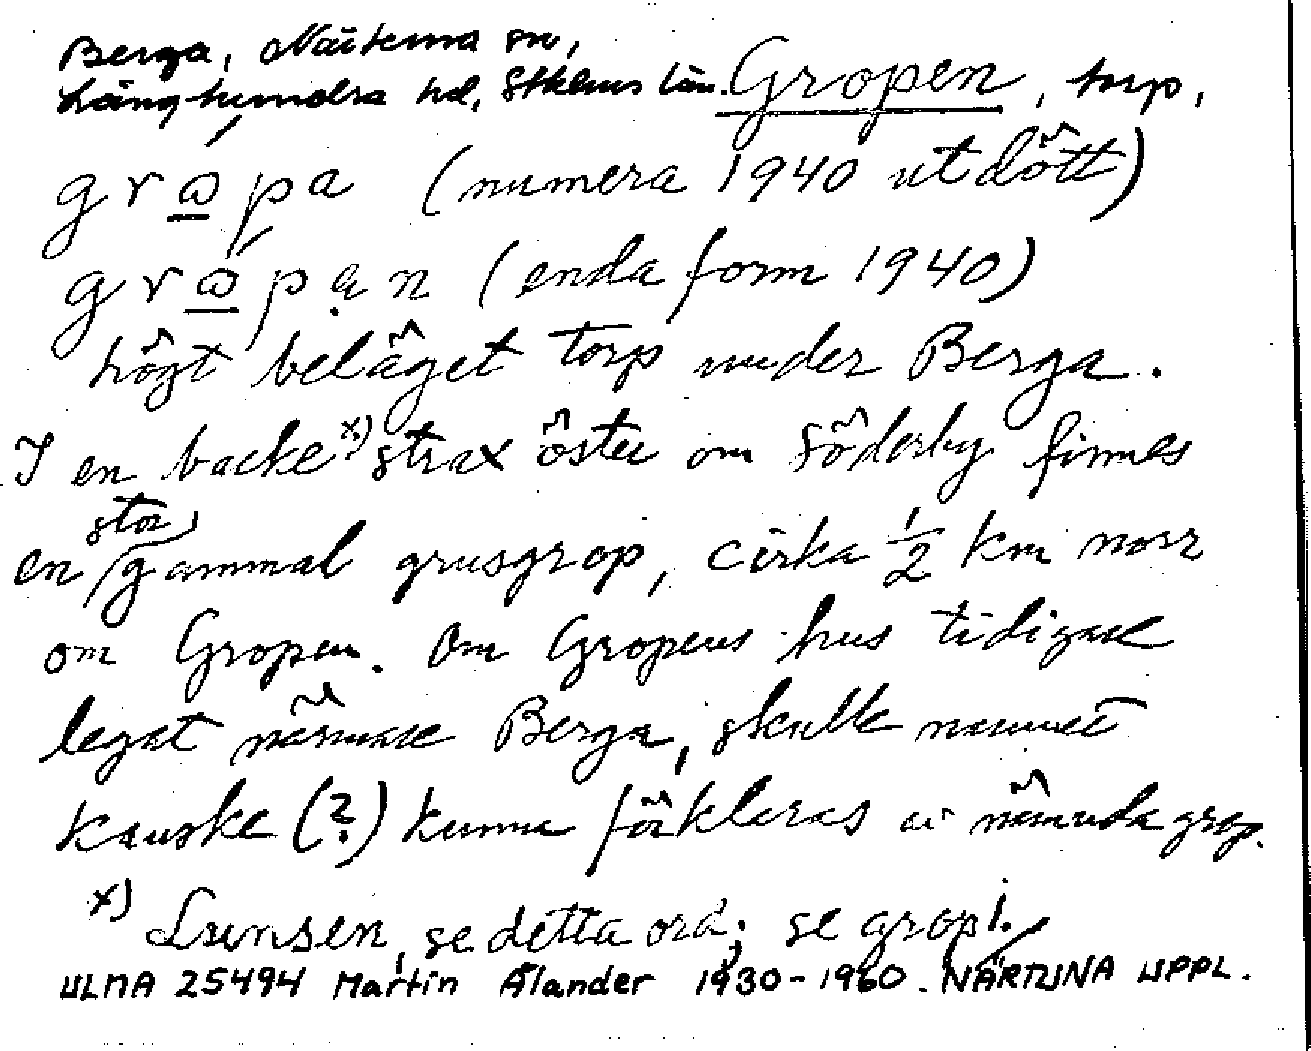 Berga, Närtuna sn,
Långhundra hd, Sthlms län. Gropen, torp,
grώ̲pa (numera 1940 utdött)
grώ̲pạn (enda form 1940)
högt beläget torp under Berga.
I en backe x) strax öster om Söderby finnes
stor,
en gammal grusgrop, cirka 1/2 km norr
om Gropen. Om Gropens hus tidigare
legat närmare Berga, skulle namnet
kanske (?) kunna förklaras av nämnda grop.
x) Lunsen, se detta ord; se grop 1.
ULMA 25494 Martin Ålander 1930-1960. NÄRTUNA UPPL.